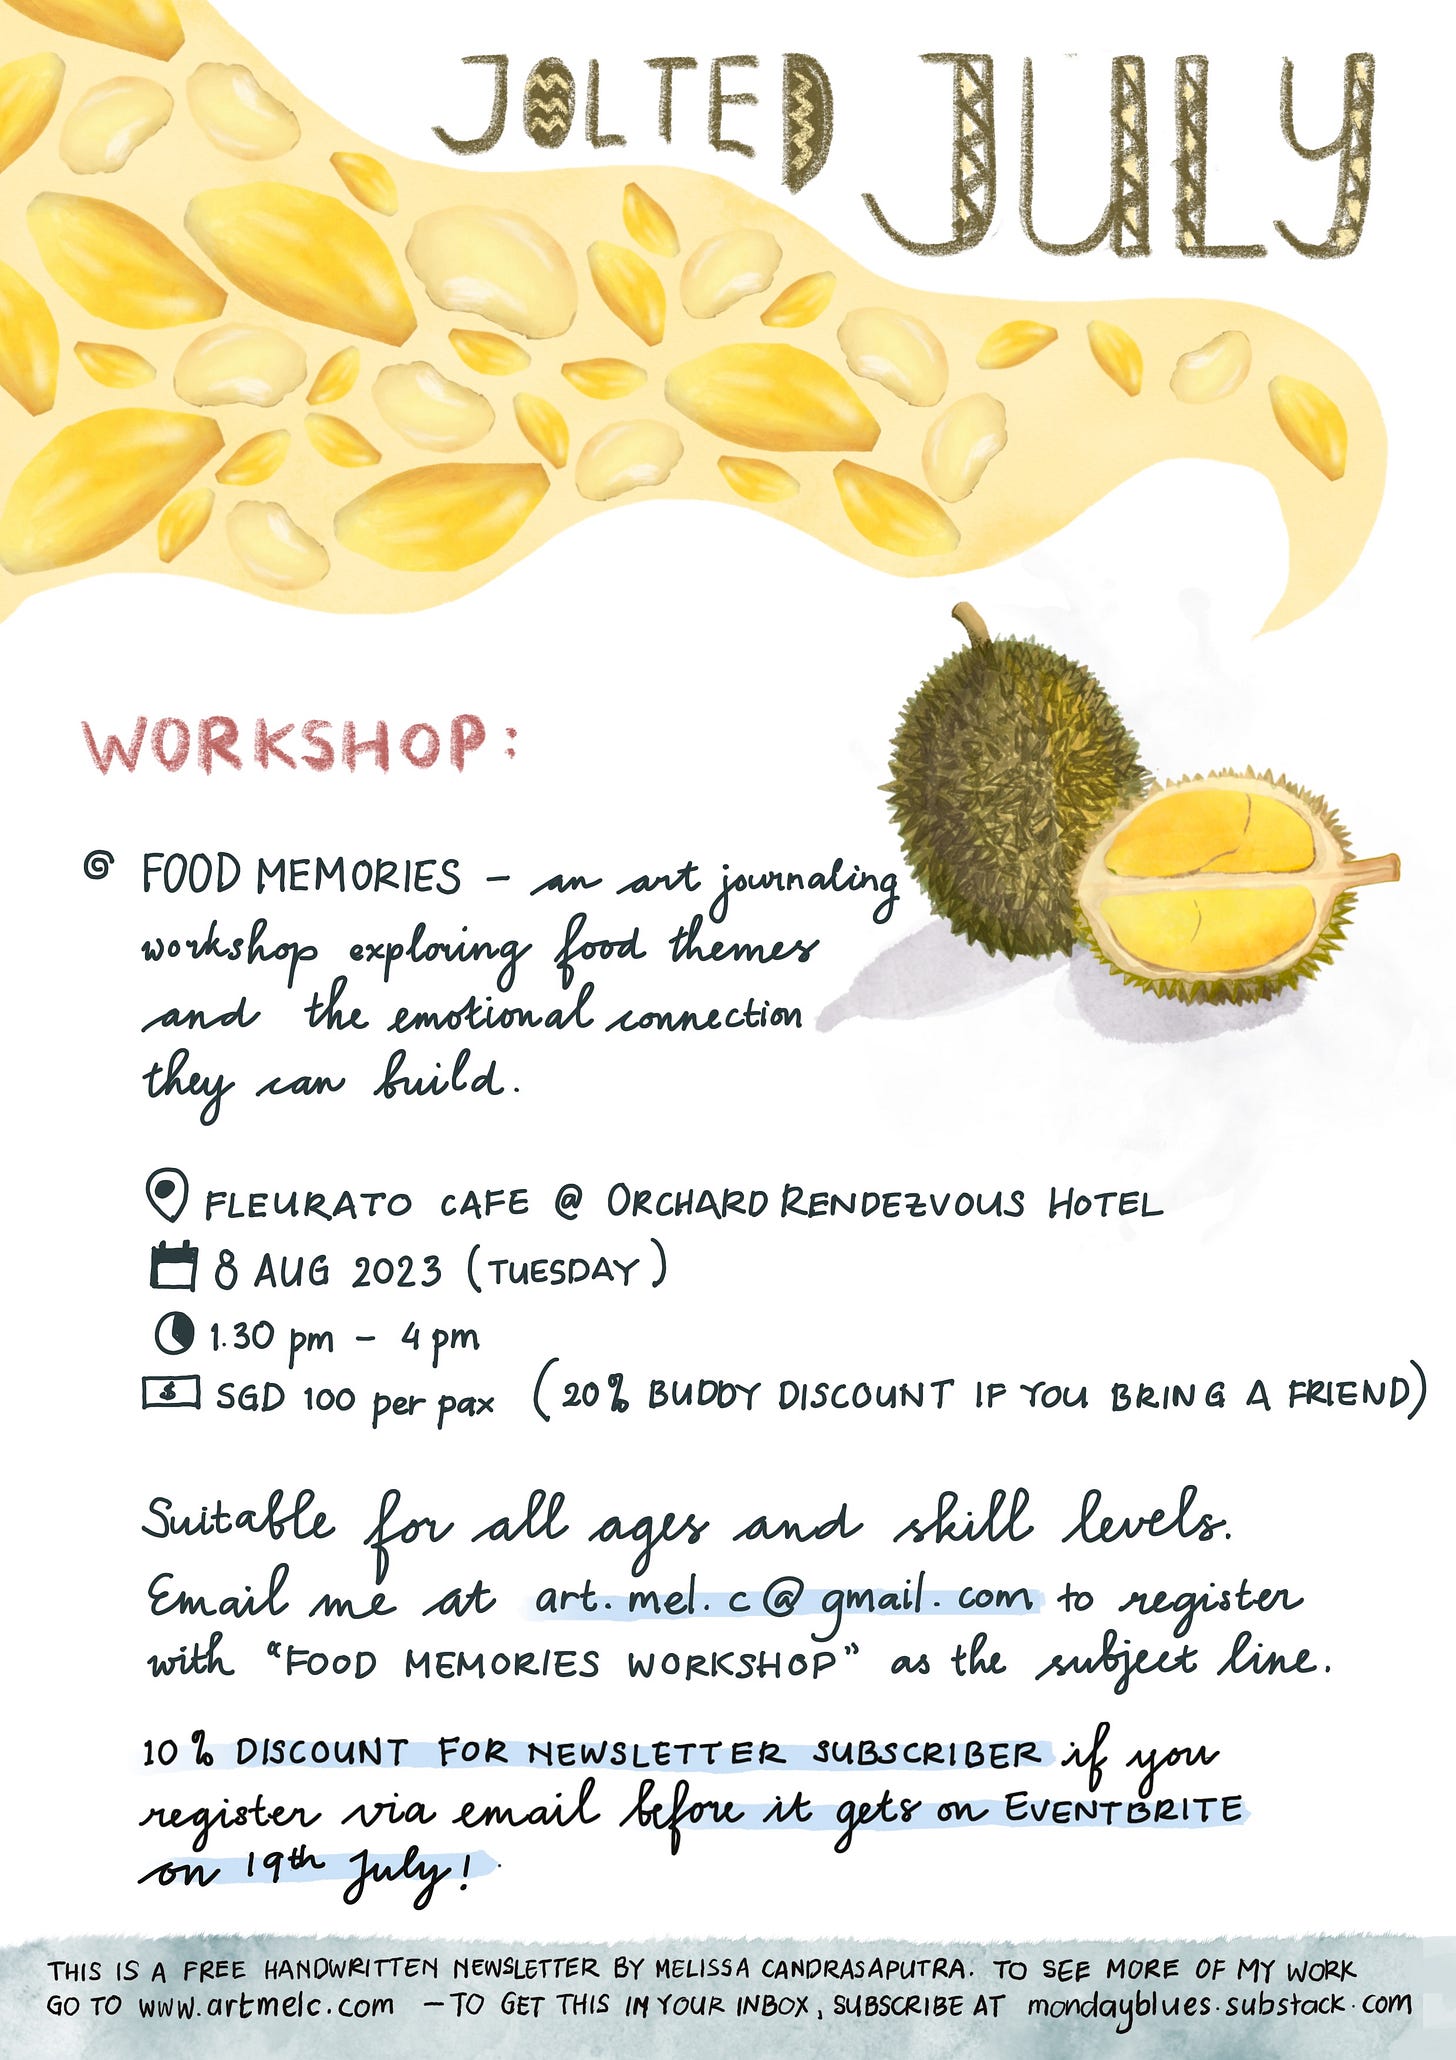 JOLTED JULY
WORKSHOP:
FOOD MEMORIES - an art journaling
workshop exploring food themes
and the emotional connection
they can build.
FLEURATO CAFE @ ORCHARD RENDEZVOUS HOTEL
8 AUG 2023 (TUESDAY)
1.30 pm - 4 pm
$ SGD 100 per pax (20% BUDDY DISCOUNT IF YOU BRING A FRIEND)
Suitable for all ages and skill levels.
Email me at art.mel.c@gmail.com to register
with "FOOD MEMORIES WORKSHOP" as the subject line.
10% DISCOUNT FOR NEWSLETTER SUBSCRIBER if you
register via email before it gets on EVENTBRITE
on 19th July!
THIS IS A FREE HANDWRITTEN NEWSLETTER BY MELISSA CANDRASAPUTRA. TO SEE MORE OF MY WORK
GO TO www.artmelc.com - TO GET THIS IN YOUR INBOX, SUBSCRIBE AT mondayblues.substack.com